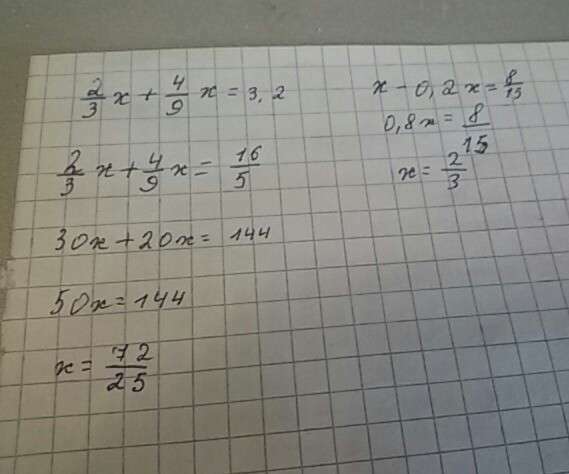 2/3 x + 4/9 x = 3,2
2/3 x + 4/9 x = 16/5
30x + 20x = 144
50x = 144
x = 72/25
x - 0,2x = 8/15
0,8x = 8/15
x = 2/3